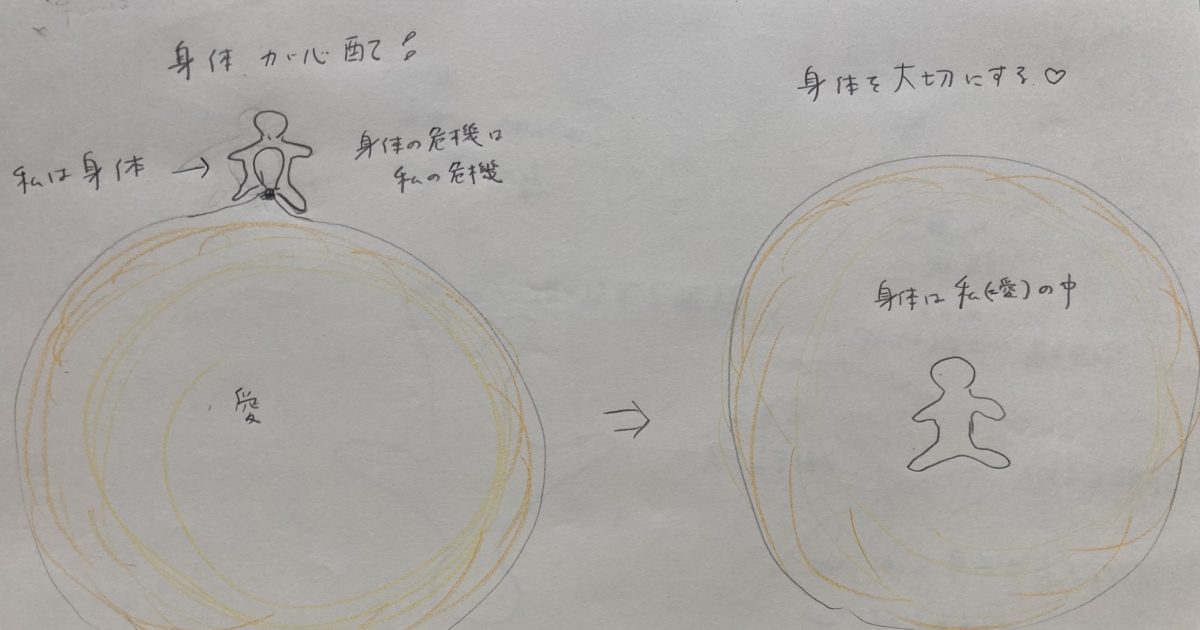 身体が心配で!
私は身体 →
身体の危機は
私の危機
愛
⇒
身体を大切にする♡
身体は私(=愛)の中